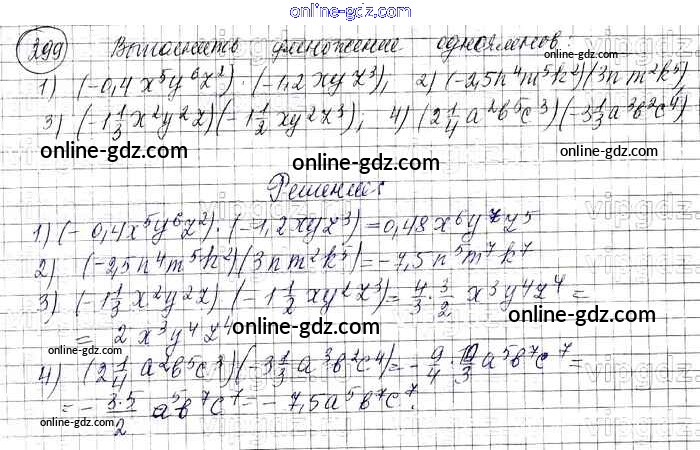 online-gdz.com
299 Выполнить умножение одночленов:
1) (-0,4x⁵y⁶z²)·(-1,2xyz³); 2) (-2,5n⁴m⁵k²)(3nm²k⁵)
3) (-1 1/3 x²y²z)(-1 1/2 xy²z³); 4) (2 1/4 a²b⁵c³)(-3 1/3 a³b²c⁴)
online-gdz.com online-gdz.com online-gdz.com
Решение:
1) (-0,4x⁵y⁶z²)·(-1,2xyz³)=0,48x⁶y⁷z⁵
online-gdz.com online-gdz.com online-gdz.com
2) (-2,5n⁴m⁵k²)(3nm²k⁵)=-7,5n⁵m⁷k⁷
3) (-1 1/3 x²y²z)(-1 1/2 xy²z³)=4/3·3/2 x³y⁴z⁴=
= 2x³y⁴z⁴
online-gdz.com online-gdz.com online-gdz.com
4) (2 1/4 a²b⁵c³)(-3 1/3 a³b²c⁴)=-9/4·10/3 a⁵b⁷c⁷=
=-3·5/2 a⁵b⁷c⁷=-7,5a⁵b⁷c⁷.
online-gdz.com online-gdz.com online-gdz.com